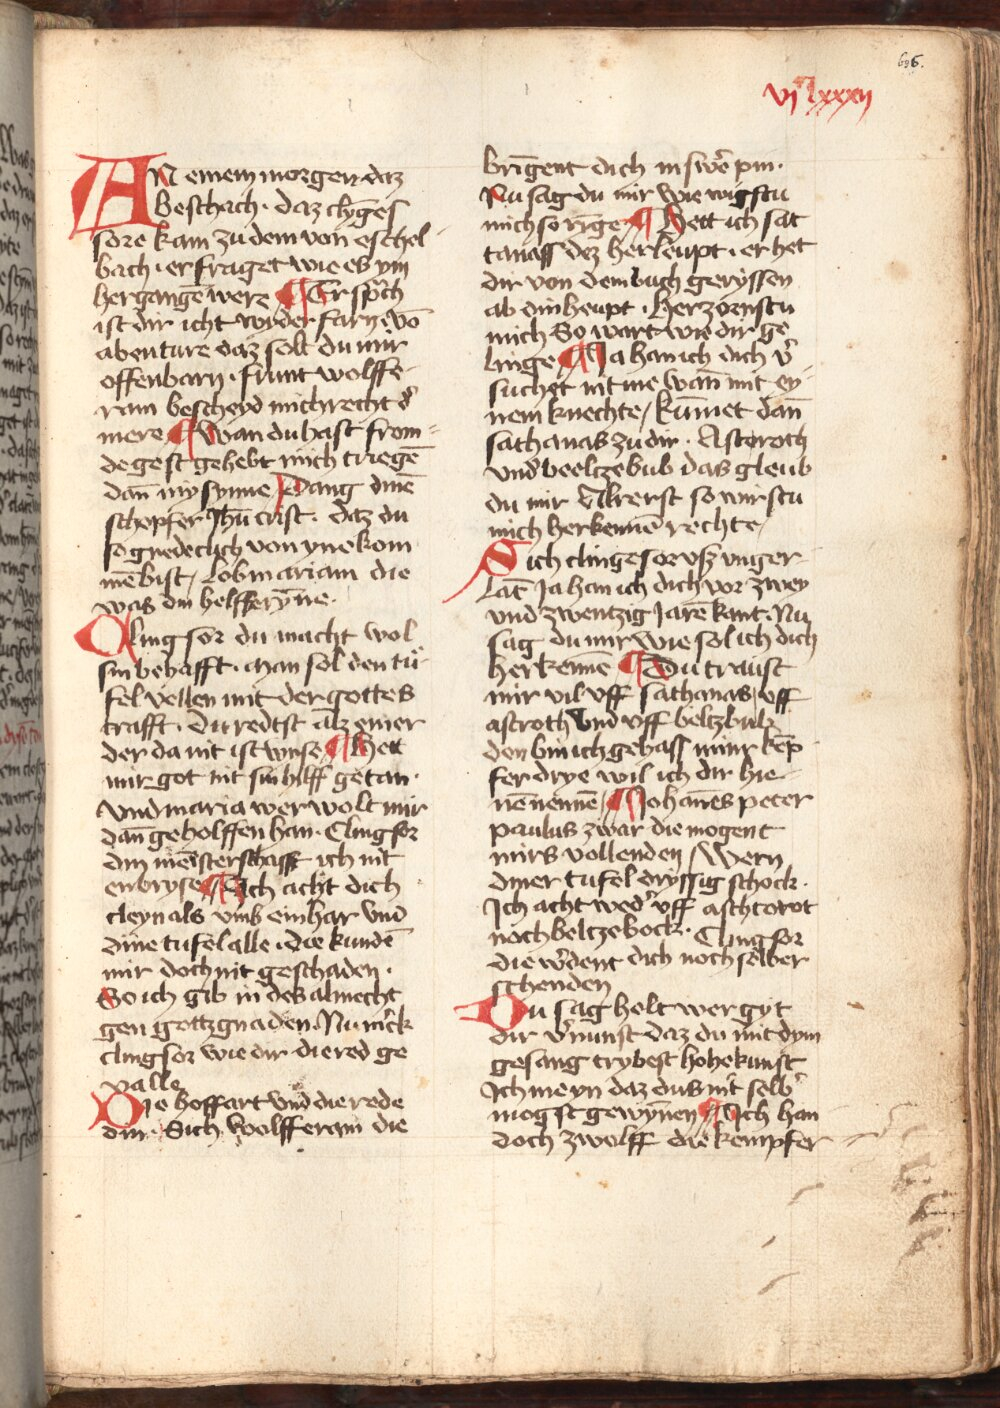 696.
vjᶜ lxxxij
AN einem morgen daz
beschach · daz clynges
sore kam zu dem von eschel
bach · er fraget wie es ym
hergangē were ¶ Er sp̄ch
ist dir icht wyder farn · vō
abenture daz solt du mir
offenbarn · frunt wolffe
ram bescheyd mich recht d͛
mere ¶ wan du hast from
de gest gehebt mich triegē
dan̄ my synne Dang dinē
schepfer Jhū crist · daz du
so gnedeclich von yne kom
mē bist / Lob mariam die
was din helfferyn̄e ·
Clingsor du macht wol
sin behafft · man sol den tu
fel vellen mit der gottes
crafft · du redest alz einer
der da nit ist wyse ¶ Hett
mir got nit sin hilff getan ·
vnd maria wer wolt mir
dan̄ geholffen han · Clingsor
din meisterschafft ich nit
enbryse ¶ Ich acht dich
cleyn als vmb ein har vnd
dine tufel alle · die kundē
mir doch nit geschaden ·
So ich gib in des almecht
gen gottz gnaden · Nu mi̓ck
clingsor wie dir die red ge
valle
Die hoffart vnd die rede
din · Sich wolfferam die
brin̄gent dich in swe͛ pin ·
Nu sag du mir wie wigstu
mich so rin̄ge ¶ Hett ich sat
tanass dez her leupt · er het
dir von dem buch geryssen
ab din heupt · Herzornstu
mich So wart wie dir ge
linge ¶ Ja han ich dich v͛
suchet nit me wan̄ mit ey
nem knechte / kum̄et dan̄
sathanas zu dir · Astoroth
vnd beelczebub das gleub
du mir Alrerst so wirstu
mich herkennē rechte /
Sich clingesore vsz vnger
lāt Ja han ich dich vor zwey
vnd zwentzig Jarē kant · Nu
sag du mir wie sol ich dich
herkennē ¶ Du traust
mir vil vff sathanas / vff
astroth vnd vff beltzbuk
den bin ich gehass minr kēp
fer drye wil ich dir hie
nēnennē / ¶ Johan̄es peter
paulus zwar die mogent
mirs vollenden / Wern
diner tufel dryssig schock ·
Ich acht wed͛ vff aschtorot
noch beltzebock · Clingsor
die wōdent dich noch selber
schenden
Du sag helt wer gyt
dir v͛nunst daz du mit dym
gesang trybest hohe kunst
Ich meyn daz dus nit selb͛
mogst gewynnen ¶ Ich han
doch zwolff die kempfer